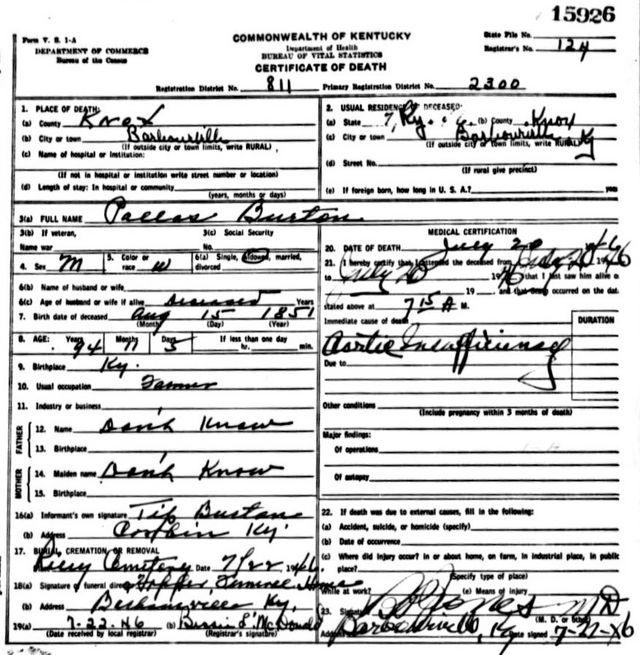 15926
Form V. S. 1-A
DEPARTMENT OF COMMERCE
Bureau of the Census
COMMONWEALTH OF KENTUCKY
Department of Health
BUREAU OF VITAL STATISTICS
CERTIFICATE OF DEATH
State File No.
Registrar's No. 124
Registration District No. 811 Primary Registration District No. 2300
1. PLACE OF DEATH:
(a) County Knox
(b) City or town Barbourville
(If outside city or town limits, write RURAL)
(c) Name of hospital or institution:
(If not in hospital or institution write street number or location)
(d) Length of stay: In hospital or community
(years, months or days)
2. USUAL RESIDENCE OF DECEASED:
(a) State Ky. (b) County Knox
(c) City or town Barbourville Ky
(If outside city or town limits, write RURAL)
(d) Street No.
(If rural give precinct)
(e) If foreign born, how long in U. S. A.? years
3(a) FULL NAME Pallas Burton
3(b) If veteran, Name war
3(c) Social Security No.
4. Sex M 5. Color or race W 6(a) Single, widowed, married, divorced
6(b) Name of husband or wife
6(c) Age of husband or wife if alive Deceased Years
7. Birth date of deceased Aug 15 1851
(Month) (Day) (Year)
8. AGE: Years Months Days If less than one day
94 11 5 hr. min.
9. Birthplace Ky.
10. Usual occupation Farmer
11. Industry or business
FATHER
12. Name Donh Know
13. Birthplace
MOTHER
14. Maiden name Donh Know
15. Birthplace
16(a) Informant's own signature Tip Burton
(b) Address Corbin Ky.
17. BURIAL, CREMATION, OR REMOVAL
Cemetery Date 7/22 1946
18(a) Signature of funeral director Hopper Funeral Home
(b) Address Barbourville Ky.
19(a) 7-22-46 (b) McDonald
(Date received by local registrar) (Registrar's signature)
MEDICAL CERTIFICATION
20. DATE OF DEATH July 20 46
21. I hereby certify that I attended the deceased from July 20 46
July 20 1946 that I last saw him alive on
19 and that death occurred on the date
stated above at 7 15 A M.
Immediate cause of death DURATION
Aortic Insufficiency
Due to
Other conditions
(Include pregnancy within 3 months of death)
Major findings:
Of operations
Of autopsy
22. If death was due to external causes, fill in the following:
(a) Accident, suicide, or homicide (specify)
(b) Date of occurrence
(c) Where did injury occur? In or about home, on farm, in industrial place, in public
place?
(Specify type of place)
While at work? (e) Means of injury
23. Signature Jones MD
(M. D. or other)
Address Barbourville, Ky Date signed 7-21-46